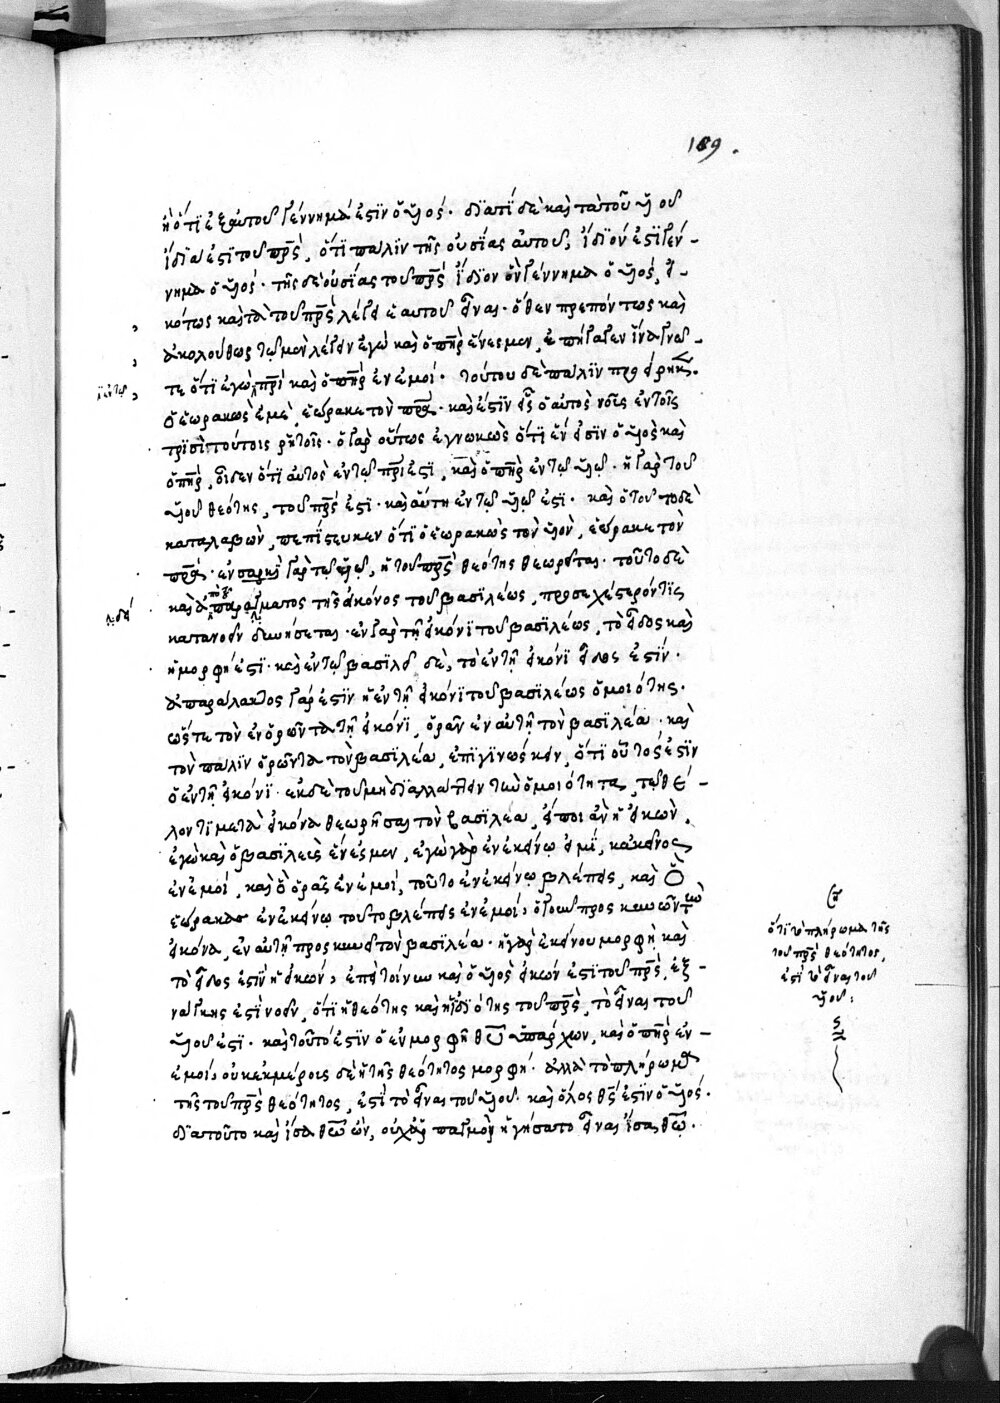 189.
ἢ ὅτι ἐξ αὐτοῦ γέννημά ἐστιν ὁ υἱός· διατί δὲ καὶ τὰ τοῦ υἱοῦ
ἴδια ἐστὶ τοῦ πρς, ὅτι πάλιν τῆς οὐσίας αὐτοῦ, ἴδιόν ἐστι γέν-
νημα ὁ υἱός· τῆς δὲ οὐσίας τοῦ πρς ἴδιον ὂν γέννημα ὁ υἱός, εἰ-
κότως καὶ τὰ τοῦ πρς λέγει ἑαυτοῦ εἶναι· ὅθεν πρεπόντως καὶ
ἀκολούθως τῷ μὲν λέγειν ἐγὼ καὶ ὁ πηρ ἕν ἐσμεν, ἐπήγαγεν ἵνα γνῶ-
τε ὅτι ἐγὼ πρι καὶ ὁ πηρ ἐν ἐμοί· τούτου δὲ πάλιν προείρηκεν·
ὁ ἑωρακὼς ἐμὲ, ἑώρακε τὸν πρα· καὶ ἔστιν εἷς ὁ αὐτὸς νοῦς ἐν τοῖς
τρισὶ τούτοις ῥητοῖς· ὁ γὰρ οὕτως ἐγνωκὼς ὅτι ἕν εἰσιν ὁ υἱὸς καὶ
ὁ πηρ, οἶδεν ὅτι αὐτὸς ἐν τῷ πρι ἐστὶ, καὶ ὁ πηρ ἐν τῷ υἱῷ· ἡ γὰρ τοῦ
υἱοῦ θεότης, τοῦ πρς ἐστὶ· καὶ αὕτη ἐν τῷ υἱῷ ἐστὶ· καὶ ὁ τοῦτο δὲ
καταλαβὼν, πεπίστευκεν ὅτι ὁ ἑωρακὼς τὸν υἱὸν, ἑώρακε τὸν
πρα· ἐν σαρκὶ γὰρ τῷ υἱῷ, ἡ τοῦ πρς θεότης θεωρεῖται· τοῦτο δὲ
καὶ ἀπὸ τοῦ παραδείγματος τῆς εἰκόνος τοῦ βασιλέως, προσεχέστερόν τις
κατανοεῖν δυνήσεται· ἐν γὰρ τῇ εἰκόνι τοῦ βασιλέως, τὸ εἶδος καὶ
ἡ μορφή ἐστι· καὶ ἐν τῷ βασιλεῖ δὲ, τὸ ἐν τῇ εἰκόνι εἶδος ἐστίν·
ἀπαράλακτος γάρ ἐστιν ἡ ἐν τῇ εἰκόνι τοῦ βασιλέως ὁμοιότης·
ὥστε τὸν ἐνορῶντα τῇ εἰκόνι, ὁρᾶν ἐν αὐτῇ τὸν βασιλέα· καὶ
τὸν πάλιν ὁρῶντα τὸν βασιλέα, ἐπιγινώσκειν, ὅτι οὗτός ἐστιν
ὁ ἐν τῇ εἰκόνι· ἐκ δὲ τοῦ μὴ διαλλάττειν τὴν ὁμοιότητα, τῷ θέ-
λοντι μετὰ εἰκόνα θεωρῆσαι τὸν βασιλέα, εἴποι ἂν ἡ εἰκὼν·
ἐγὼ καὶ ὁ βασιλεὺς ἕν ἐσμεν, ἐγὼ γὰρ ἐν ἐκείνῳ εἰμὶ, κἀκεῖνος
ἐν ἐμοί, καὶ ὃ ὁρᾷς ἐν ἐμοὶ, τοῦτο ἐν ἐκείνῳ βλέπεις, καὶ ὃ
ἑώρακας ἐν ἐκείνῳ τοῦτο βλέπεις ἐν ἐμοί· ὁ γοῦν προσκυνῶν τὴν
εἰκόνα, ἐν αὐτῇ προσκυνεῖ τὸν βασιλέα· ἡ γὰρ ἐκείνου μορφὴ καὶ
τὸ εἶδος ἐστὶν ἡ εἰκών· ἐπεὶ τοίνυν καὶ ὁ υἱὸς εἰκών ἐστι τοῦ πρς, ἐξ
ἀνάγκης ἐστὶ νοεῖν, ὅτι ἡ θεότης καὶ ἡ ἰδιότης τοῦ πρς, τὸ εἶναι τοῦ
υἱοῦ ἐστι· καὶ τοῦτό ἐστιν ὃ ἐν μορφῇ θυ ὑπάρχων, καὶ ὁ πηρ ἐν
ἐμοί· οὐκ ἐκ μέρους δὲ ἡ τῆς θεότητος μορφή· ἀλλὰ τὸ πλήρωμα
τῆς τοῦ πρς θεότητος, ἐστὶ τὸ εἶναι τοῦ υἱοῦ· καὶ ὅλος θς ἐστὶν ὁ υἱός·
διατοῦτο καὶ ἴσα θῶ ὢν, οὐχ ἁρπαγμὸν ἡγήσατο εἶναι ἴσα θῷ·
ὅτι τὸ πλήρωμα τῆς
τοῦ πρς θεότητος,
ἐστὶ τὸ εἶναι τοῦ
υἱοῦ: